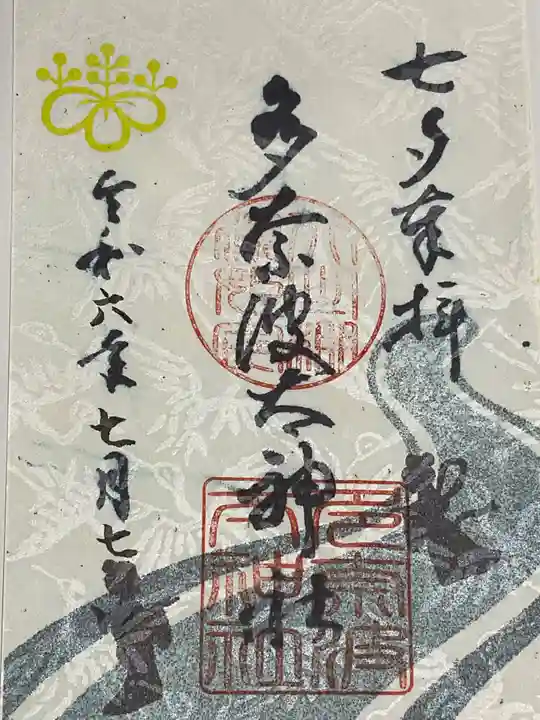 七夕奉拝
多奈波太神社
令和六年七月七
多奈波
太神社